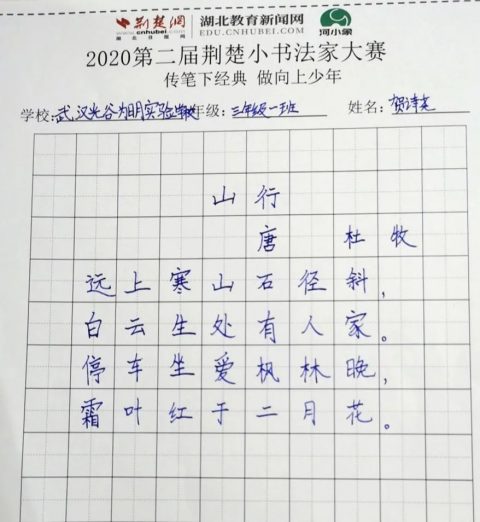 荆楚網 湖北教育新闻网 河小象
www.cnhubei.com EDU.CNHUBEI.COM
湖北日报网
2020第二届荆楚小书法家大赛
传笔下经典 做向上少年
学校:武汉光谷为明实验学校 年级:三年级一班 姓名:贺诗
山行
唐 杜牧
远上寒山石径斜,
白云生处有人家。
停车坐爱枫林晚,
霜叶红于二月花。